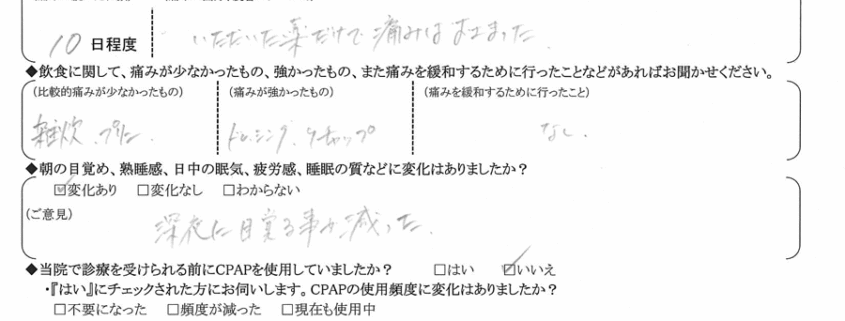 10 日程度
いただいた薬だけで痛みはおさまった。
◆飲食に関して、痛みが少なかったもの、強かったもの、また痛みを緩和するために行ったことなどがあればお聞かせください。
（比較的痛みが少なかったもの）
（痛みが強かったもの）
（痛みを緩和するために行ったこと）
雑炊、プリン
ドレッシング、ケチャップ
なし。
◆朝の目覚め、熟睡感、日中の眠気、疲労感、睡眠の質などに変化はありましたか？
☑変化あり　☐変化なし　☐わからない
（ご意見）
深夜に目覚る事が減った。
◆当院で診療を受けられる前にCPAPを使用していましたか？　☐はい　☑いいえ
・『はい』にチェックされた方にお伺いします。CPAPの使用頻度に変化はありましたか？
☐不要になった　☐頻度が減った　☐現在も使用中